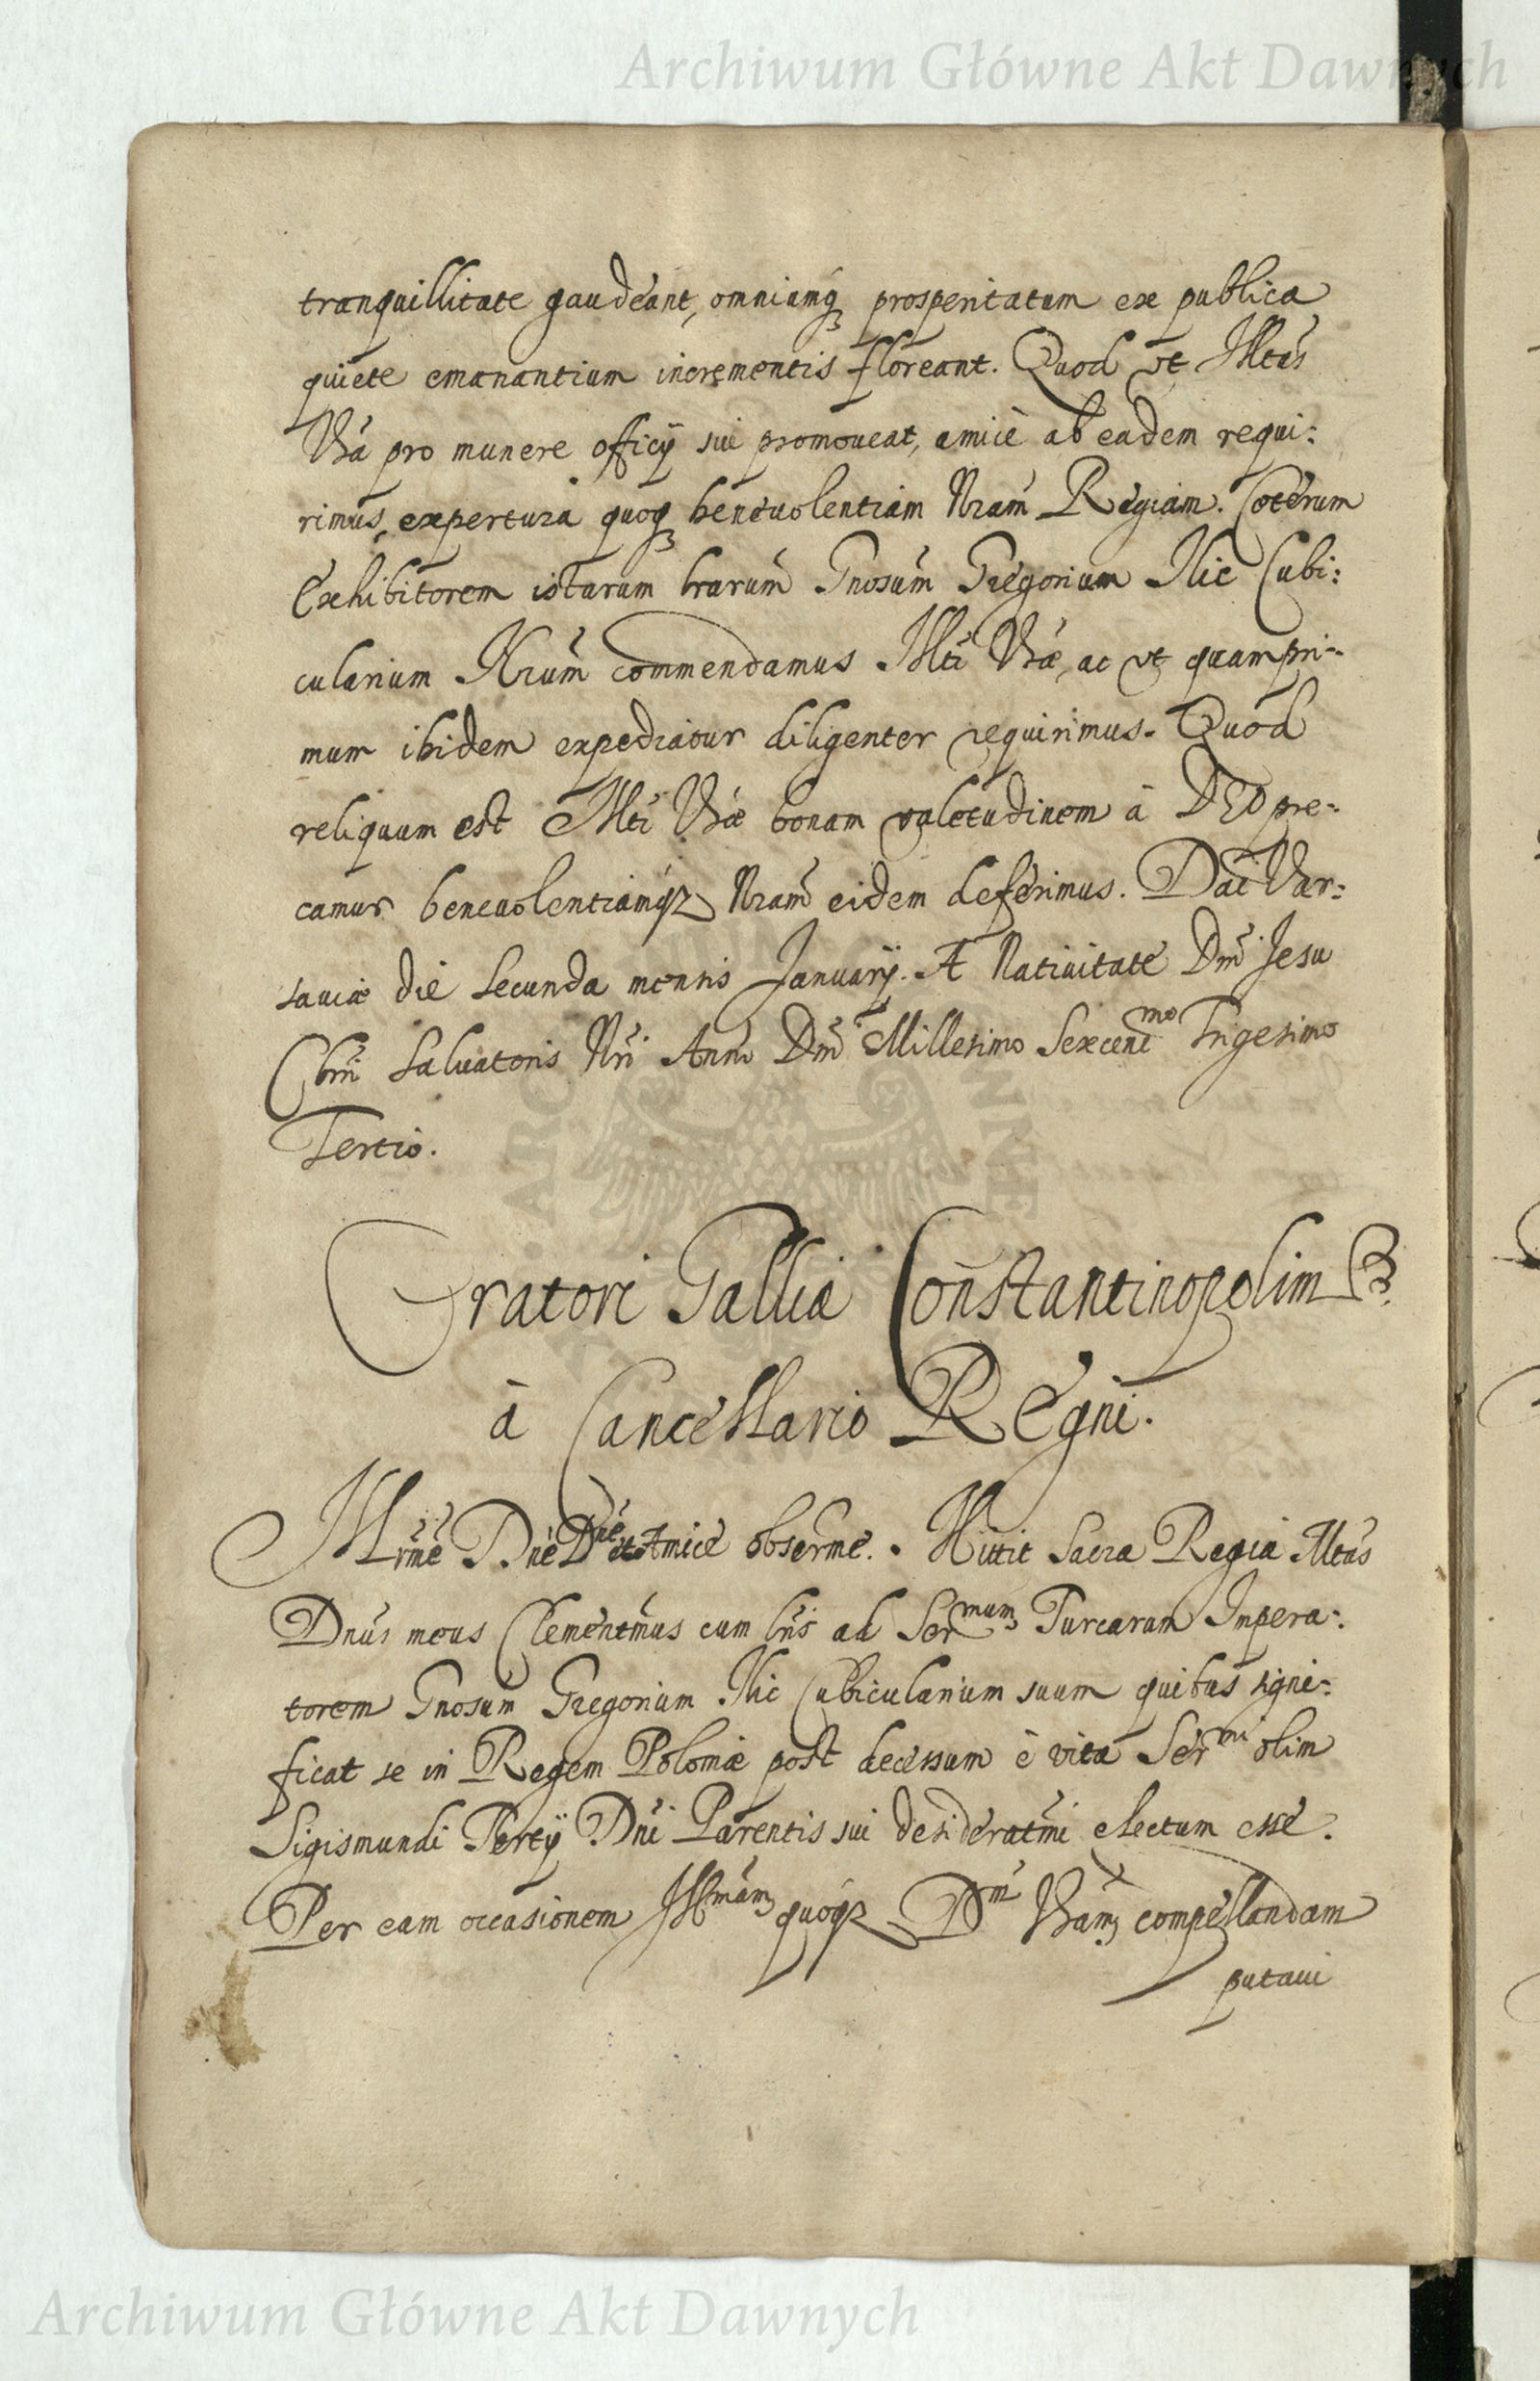 Archiwum Główne Akt Dawnych
tranquillitate gaudeant, omniumq; prosperitatum ex publica
quiete emanantium incrementis floreant. Quod vt Mtas
Vrã pro munere officij sui promoueat, amicè ab eadem requi:
rimus, expertura quoq; beneuolentiam Nram Regiam. Coeterum
Exhibitorem istarum lrarum Gnosum Gregorium Ilic Cubi:
cularium Nrum commendamus Mti Vræ, ac vt quampri:
mum ibidem expediatur diligenter requirimus. Quod
reliquum est Mti Vræ bonam valetudinem à DEO pre:
camur beneuolentiamq; Nram eidem deferimus. Dat Var:
sauiæ die secunda mensis Januarij. A Natiuitate Dni Jesu
Chri Saluatoris Nri Anno Dni Millesimo Sexcent^mo Trigesimo
Tertio.
Oratori Galliæ Constantinopolim
à Cancellario Regni.
Illrme Dne Dne et Amice obserme. Mittit Sacra Regia Mtas
Dnus meus Clementmus cum lris ad Ser^mum Turcarum Impera:
torem Gnosum Gregorium Ilic Cubicularium suum quibus signi:
ficat se in Regem Poloniæ post decessum è vita Ser^mi olim
Sigismundi Tertij Dni Parentis sui desideratmi electum esse.
Per eam occasionem Ill^mam quoq; D^m Vram compellandam
putaui
Archiwum Główne Akt Dawnych